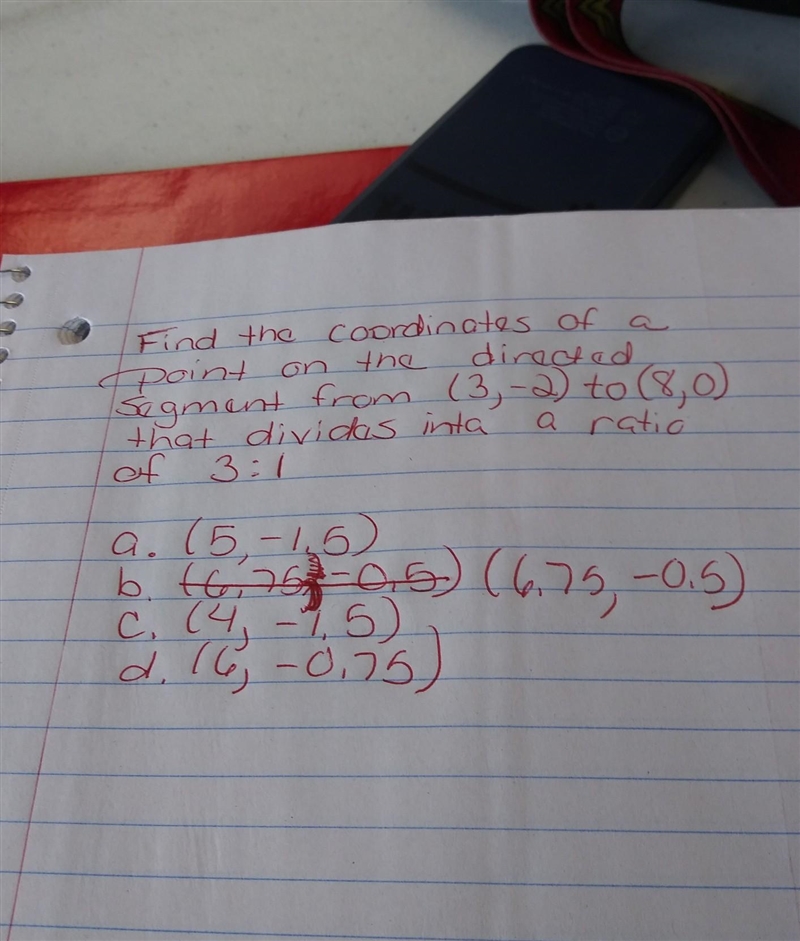 Find the coordinates of a
point on the directed
segment from (3,-2) to (8,0)
that divides into a ratio
of 3:1
a. (5, -1.5)
b. (6.75, -0.5) (6.75, -0.5)
c. (4, -1.5)
d. (6, -0.75)